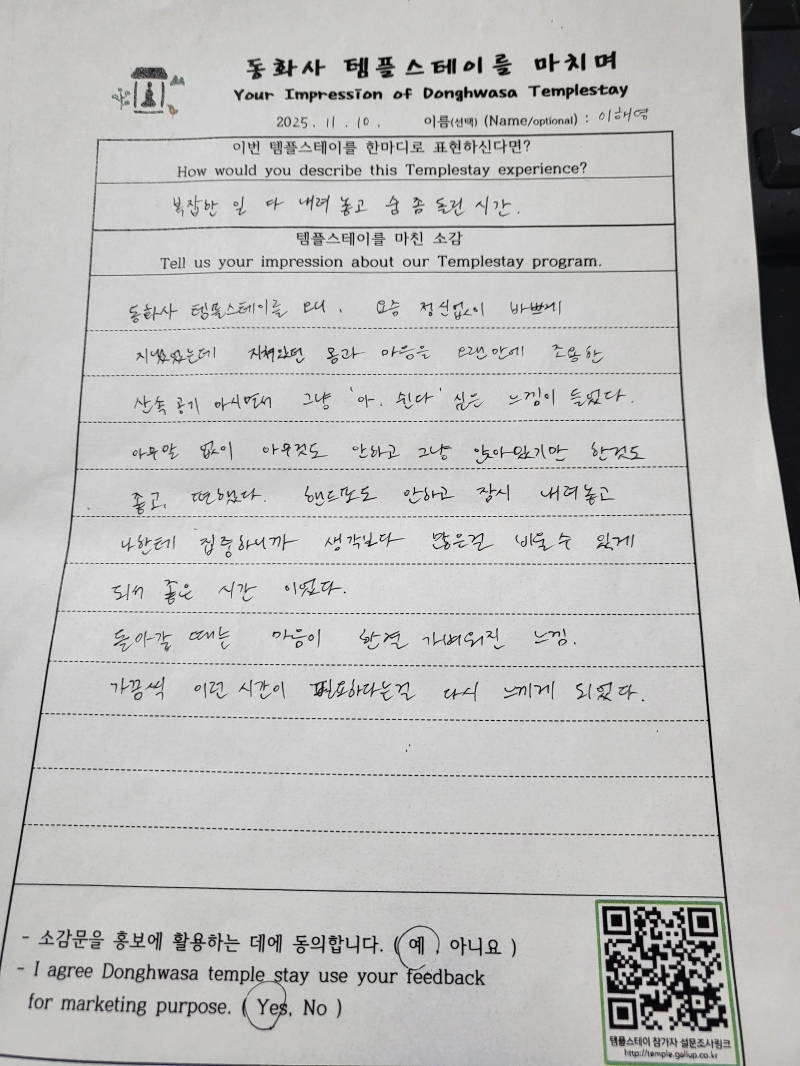 동화사 템플스테이를 마치며
Your Impression of Donghwasa Templestay
2025. 11. 10. 이름(선택) (Name/optional) : 이해영
이번 템플스테이를 한마디로 표현하신다면?
How would you describe this Templestay experience?
복잡한 일 다 내려 놓고 숨 좀 돌린 시간.
템플스테이를 마친 소감
Tell us your impression about our Templestay program.
동화사 템플스테이를 오니, 요즘 정신없이 바쁘게
지냈었는데 지쳐있던 몸과 마음을 오랜만에 조용한
산속 공기 마시면서 그냥 '아. 쉰다' 싶은 느낌이 들었다.
아무말 없이 아무것도 안하고 그냥 앉아있기만 한것도
좋고, 편했다. 핸드폰도 안하고 잠시 내려놓고
나한테 집중하니까 생각보다 많은걸 비울 수 있게
되서 좋은 시간 이었다.
돌아갈 때는 마음이 한결 가벼워진 느낌.
가끔씩 이런 시간이 필요하다는걸 다시 느끼게 되었다.
- 소감문을 홍보에 활용하는 데에 동의합니다. ( 예 , 아니요 )
- I agree Donghwasa temple stay use your feedback
for marketing purpose. ( Yes, No )
템플스테이 참가자 설문조사링크
http://temple.gallup.co.kr